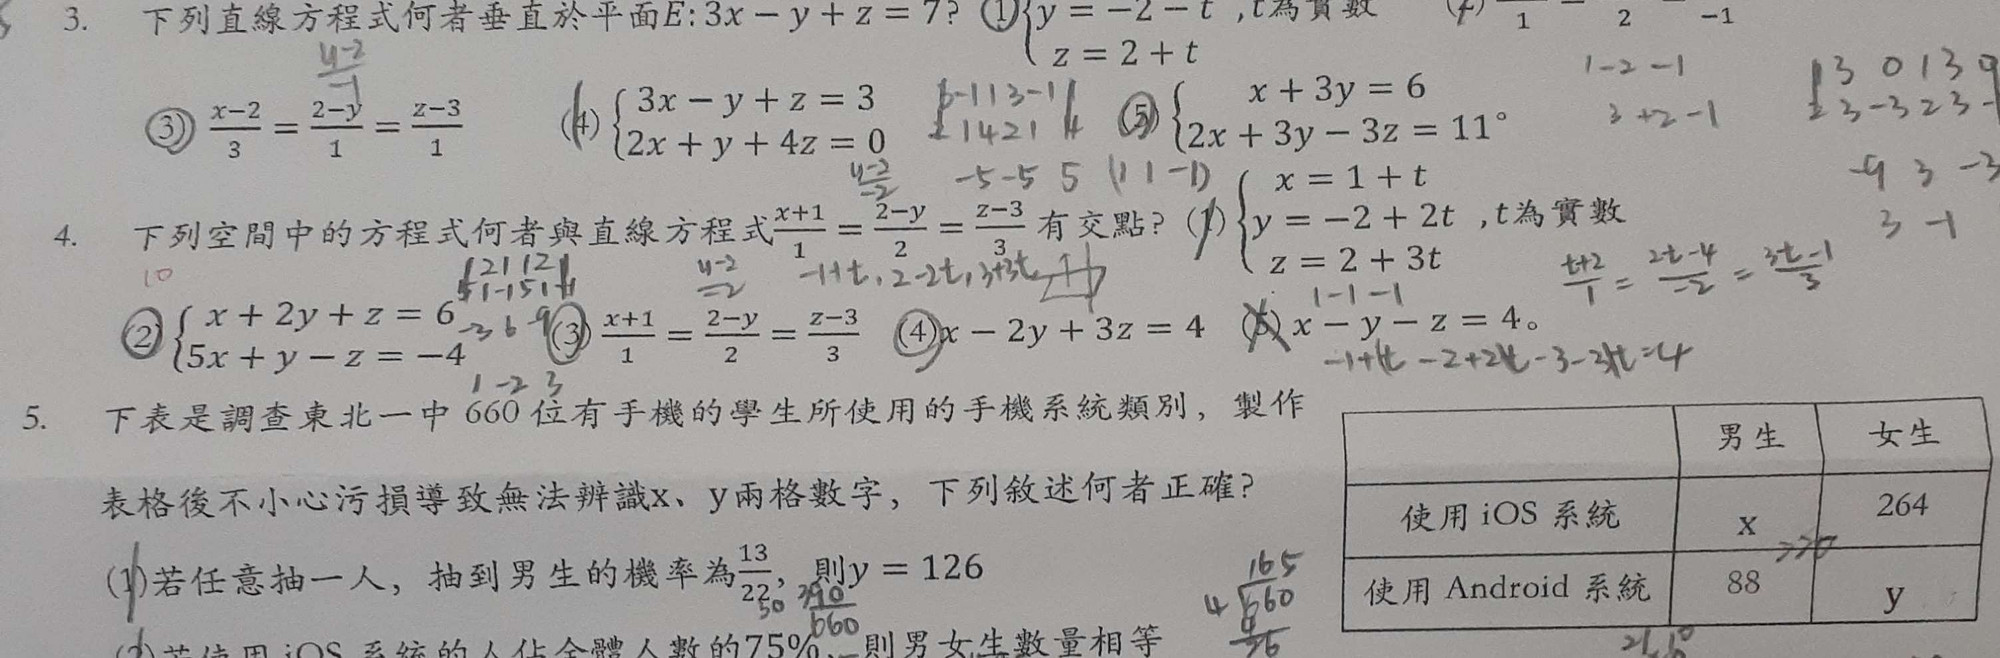 3. 下列直線方程式何者垂直於平面E: 3x − y + z = 7? (1) { y = −2 − t , t為實數
z = 2 + t
1 2 −1
y-2
-1
(3) x−2/3 = 2−y/1 = z−3/1 (4) { 3x − y + z = 3 (5) { x + 3y = 6
2x + y + 4z = 0 2x + 3y − 3z = 11。
1-2-1
3+2-1
-5-5 5 (1 1 -1)
-9 3 -3
3 -1
4. 下列空間中的方程式何者與直線方程式 x+1/1 = 2−y/2 = z−3/3 有交點? (1) { x = 1 + t
y = −2 + 2t , t為實數
z = 2 + 3t
10
y-2
-2
-1+t, 2-2t, 3+3t
t+2/1 = 2t-4/-2 = 3t-1/3
(2) { x + 2y + z = 6 (3) x+1/1 = 2−y/2 = z−3/3 (4) x − 2y + 3z = 4 (5) x − y − z = 4。
5x + y − z = −4
-3 6 -9
1-1-1
1 -2 3
5. 下表是調查東北一中 660 位有手機的學生所使用的手機系統類別，製作
表格後不小心污損導致無法辨識x、y兩格數字，下列敘述何者正確?
男生 女生
使用 iOS 系統 x 264
使用 Android 系統 88 y
(1)若任意抽一人，抽到男生的機率為13/22，則y = 126
390
660
165
4 660
(2)若使用 iOS 系統的人佔全體人數的75%，則男女生數量相等